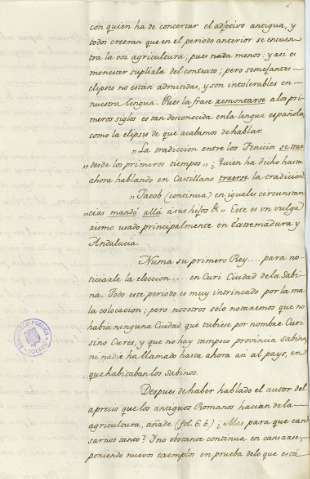 con quien ha de concertar el adjetivo antigua, y
todos creeran que en el periodo anterior se encuen-
tra la voz agricultura; pues nada menos: y asi es
menester suplirla del contexto; pero semejantes
elipses no estan admitidas, y son intolerables en
nuestra lengua. Pues la frase remontarse a los pri-
meros siglos es tan desconocida en la lengua española,
como la elipsis de que acabamos de hablar.
"La tradiccion entre los Fenicios se trae
"desde los primeros tiempos"; Quien ha dicho hasta
ahora hablando en Castellano traerse la tradiccion
"Jacob (continua) en iguales circunstan
"cias mandó allá a sus hijos &c." Este es un vulga-
rismo usado principalmente en Extremadura y
Andalucia.
Numa su primero Rey... para no-
ticiarle la eleccion... en Curi Ciudad de la Sabi-
na. Todo este periodo es muy intrincado por la ma-
la colocacion; pero nosotros solo notaremos que no
habia ninguna Ciudad que tubiese por nombre Curi
sino Cures, y que no hay tampoco provincia Sabina,
ni nadie ha llamado hasta ahora asi al pays, en
que habitaban los Sabinos.
Despues de haber hablado el autor del
aprecio que los antiguos Romanos hacian de la
agricultura, añade (fol. 6.) ¿Mas para que can-
sarnos tanto? Y no obstante continua en cansarse,
poniendo nuevos exemplos en prueba de lo que está